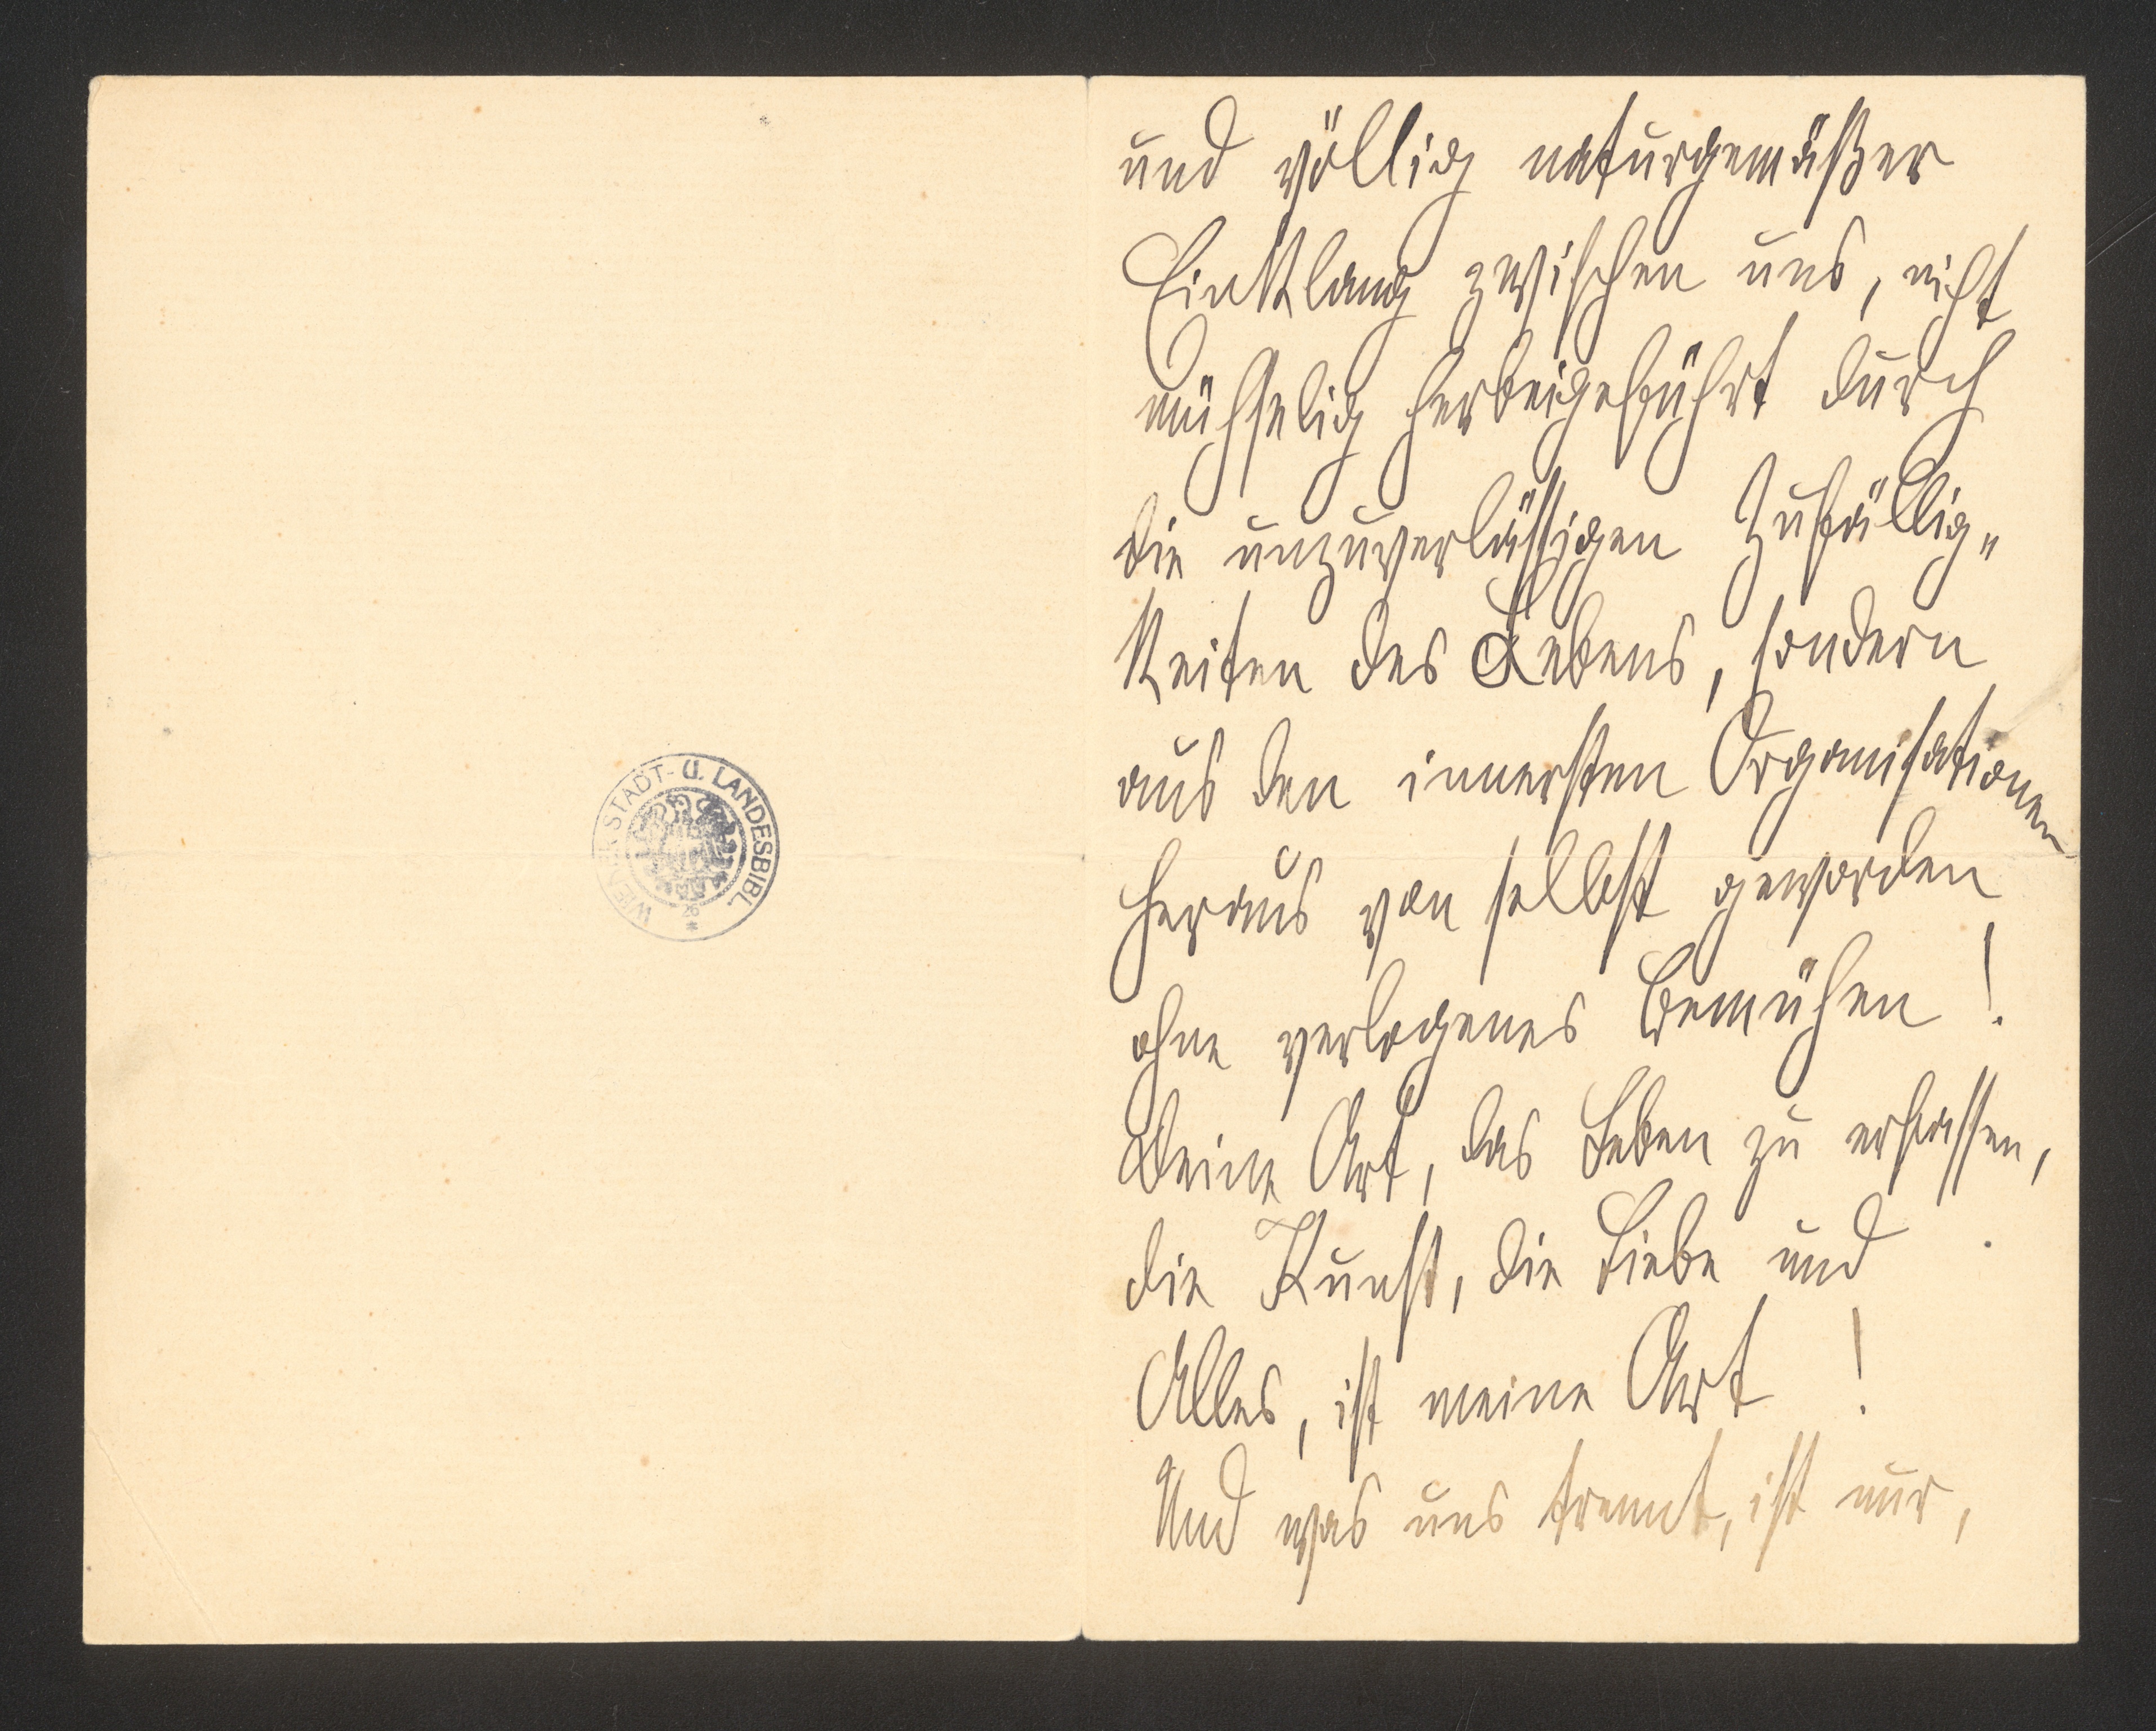 WIENER STADT- U. LANDESBIBL.
und völlig naturgemäßer
Einklang zwischen uns, nicht
mühselig herbeigeführt durch
die unzuverlässigen Zufällig„
keiten des Lebens, sondern
aus den innersten Organisationen
heraus von selbst geworden
ohne verlogenes Bemühen !
Deine Art, das Leben zu erfassen,
die Kunst, die Liebe und
Alles, ist meine Art !
Und was uns trennt, ist nur,